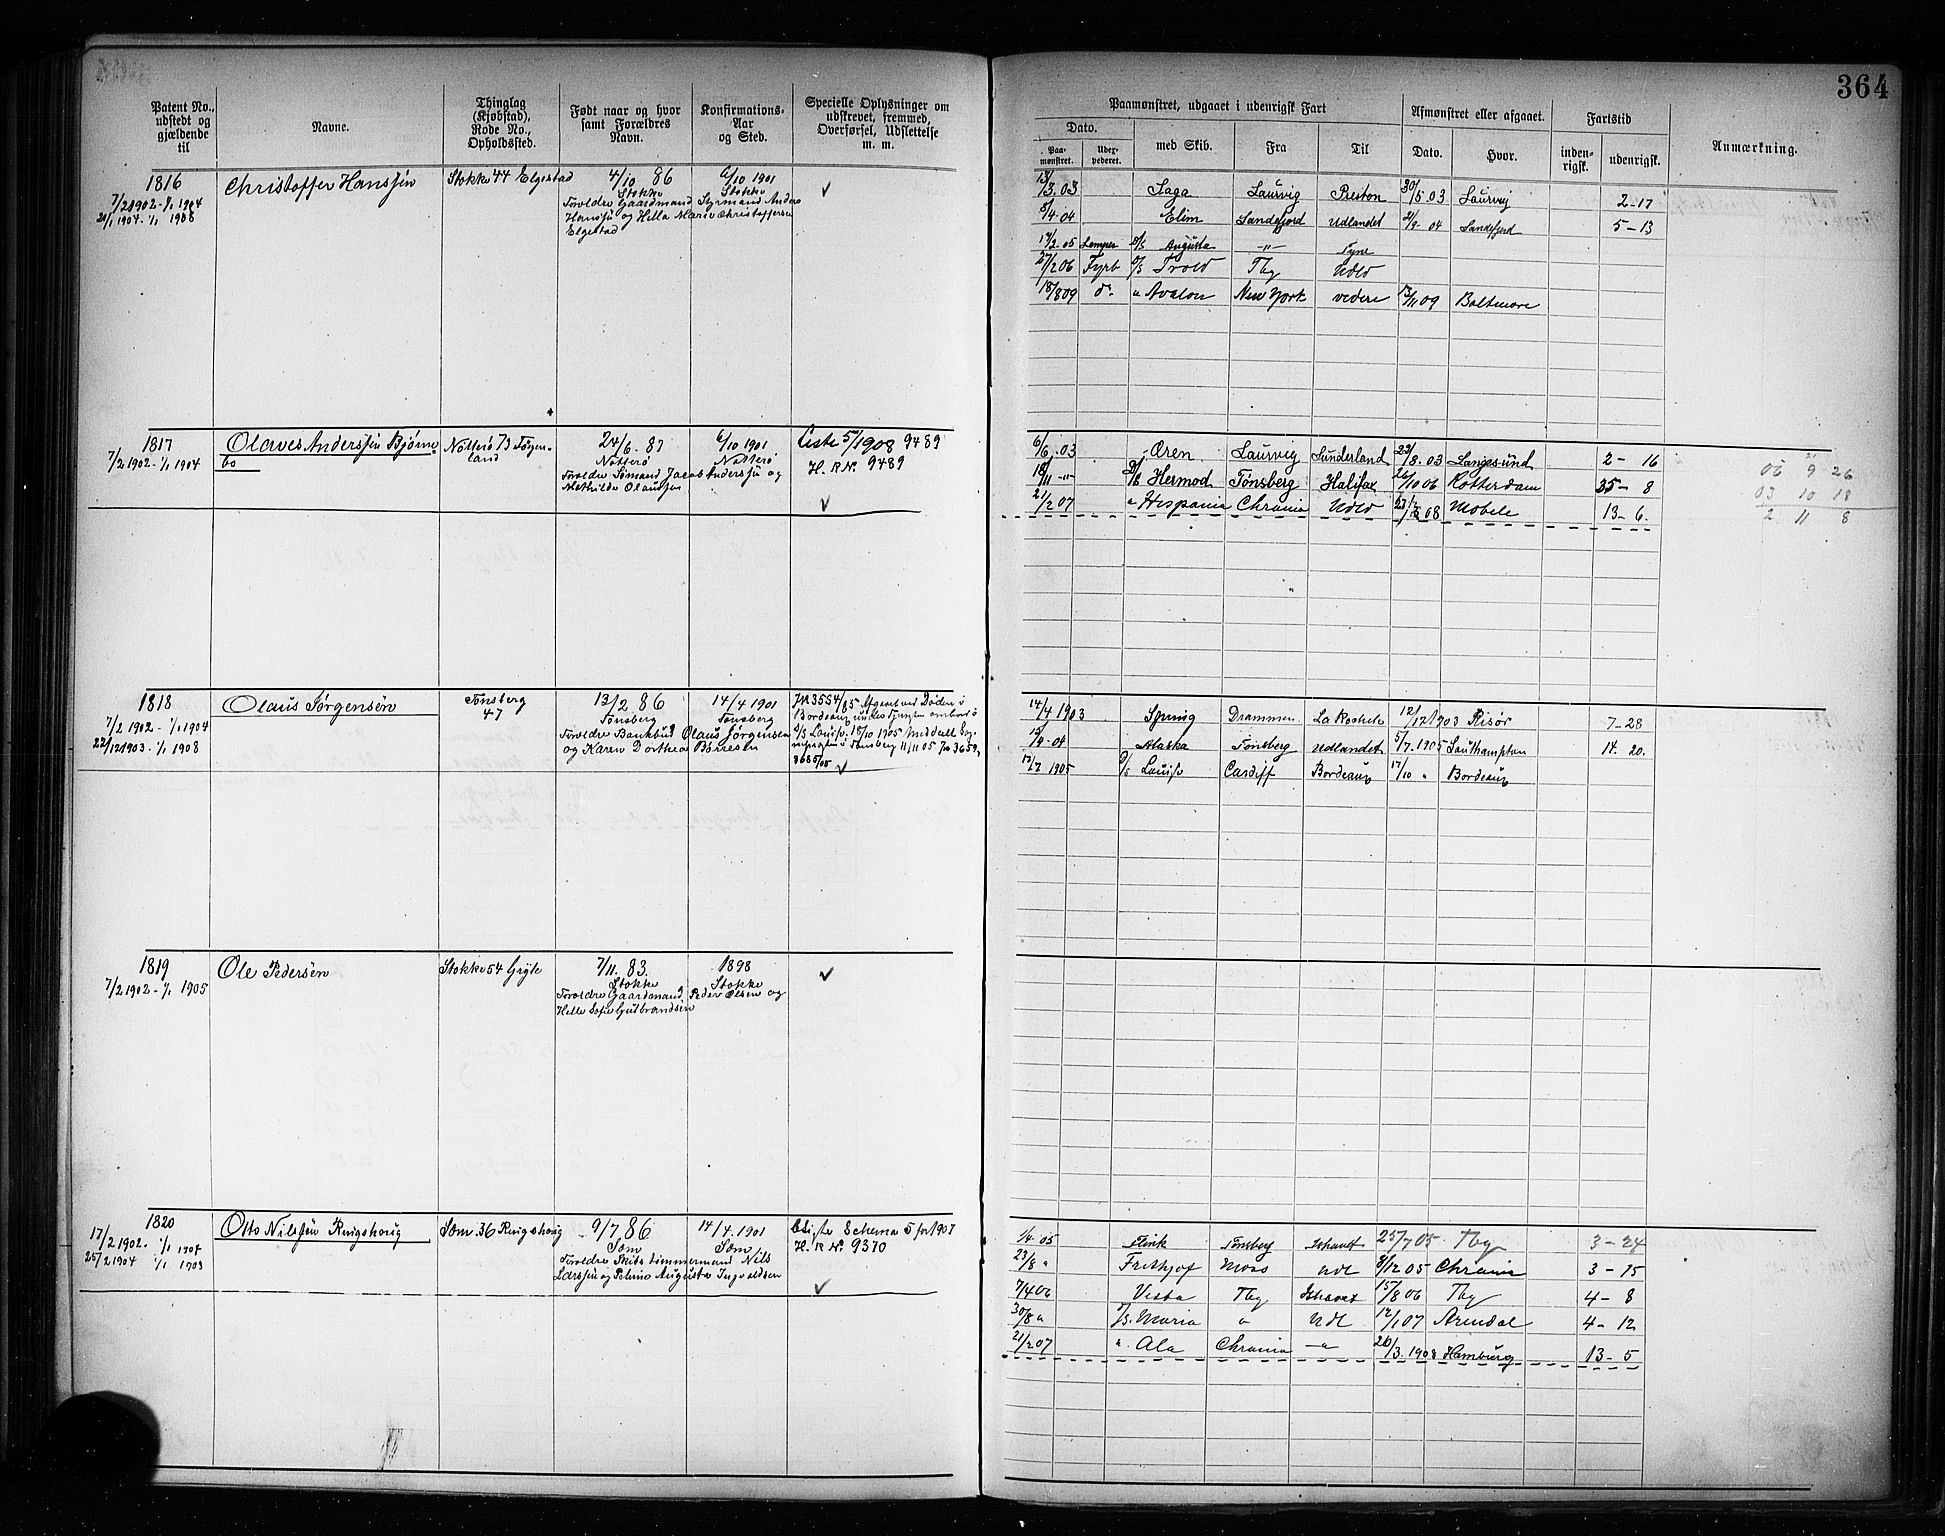 364
Patent No., udstedt og gjældende til
Navne.
Thinglag (Kjøbstad), Rode No., Opholdssted.
Født naar og hvor samt Forældres Navn.
Konfirmations-Aar og Sted.
Specielle Oplysninger om udskrevet, fremmed, Overførsel, Udslettelse m. m.
Paamønstret, udgaaet i udenrigsk Fart
Afmønstret eller afgaaet.
Fartstid
Anmærkning.
Dato.
Paa-mønstret.
med Skib.
Fra
Til
Dato.
Hvor.
inden-rigsk.
udenrigsk.
1816 Christoffer Hanssen Stokke 44 Elgestad 4/10 86 6/10 1901
7/2 1902 - 1/1 1904 Stokke Stokke
21/1 1904 - 1/1 1908 Foreldre Gaardmand Styrmand Anders
Hanssen og Hella Marie Christoffersen
Elgestad
13/3.03 Saga Laurvig Preston 30/5 03 Laurvig 2-17
8/4.04 Elim Sandefjord Udlandet 21/9 04 Sandefjord 5-13
14/2 05 Lemper D/S Augusta -"- Tyne
27/2 06 Fyrb D/S Trold Tbg Udld
18/8 09 do " Avalon New York videre 13/11 09 Baltimore
1817 Olaves Anderssen Bjørne Nøtterø 73 Føgen- 24/6. 87 6/10 1901 Liste 5/1908 9489
7/2 1902 - 1/1 1904 bo land Nøtterø Nøtterø H. R No 9489
Foreldre Sømand Jacob Anderssen og
Mathilde Olaussen
6/6.03 Øren Laurvig Sunderland 22/8.03 Langesund 2-16
18/11 -"- D/S Hermod Tønsberg Halifax 26/10 06 Rotterdam 35-8
21/2 07 " Hispania Chrania Udld 08 Mobile 13-6.
06 9 26
03 10 18
2 11 8
1818 Olaus Jørgensen Tønsberg 13/2 86 14/4 1901
7/2 1902 - 1/1 1904 47 Tønsberg Tønsberg
22/12 1903 - 1/1 1908 Foreldre Olaus Jørgensen
og Karen Dorthea Børresen
Afgaaet ved Døden i
Bordeaux under Tjeneste ombord i
D/S Louise 17/10 1905
Tønsberg 11/11 05
14/4 1903 Spring Drammen La Rochelle 12/12 1903 Risør 7-28
15/4-04 Alaska Tønsberg Udlandet 5/7.1905 Southampton 14.20.
17/7 1905 D/S Louise Cardiff Bordeaux 17/10 " Bordeaux
1819 Ole Pedersen Stokke 54 Gryte 7/11.83. 1898
7/2 1902 - 1/1 1905 Stokke Stokke
Foreldre Gaardmand Peder Olsen og
Helle Sofie Gulbrandsen
1820 Otto Nilssen Ringshoug Sem 36 Ringshoug 9/7 86 14/4.1901 Schema 5 for 1907
17/2 1902. 1/1 1904 Sem Sem H. R No 9370
25/2 1904 1/1 1909
Foreldre Skibstømmermand Nils
Larssen og Petrine Augusta Ingvaldsen
1/4.05 Flink Tønsberg Ishavet 25/7 05 Tbg 3-24
23/8 " Frithjof Moss Udl 8/12 05 Chrania 3-15
7/4 06 Vesta Tbg Ishavet 15/8 06 Tbg 4-8
30/8 " D/S. Maria " Udl 12/1 07 Arendal 4-12
21/2 07 " Ala Chrania -"- 26/3.1908 Hamburg 13-5